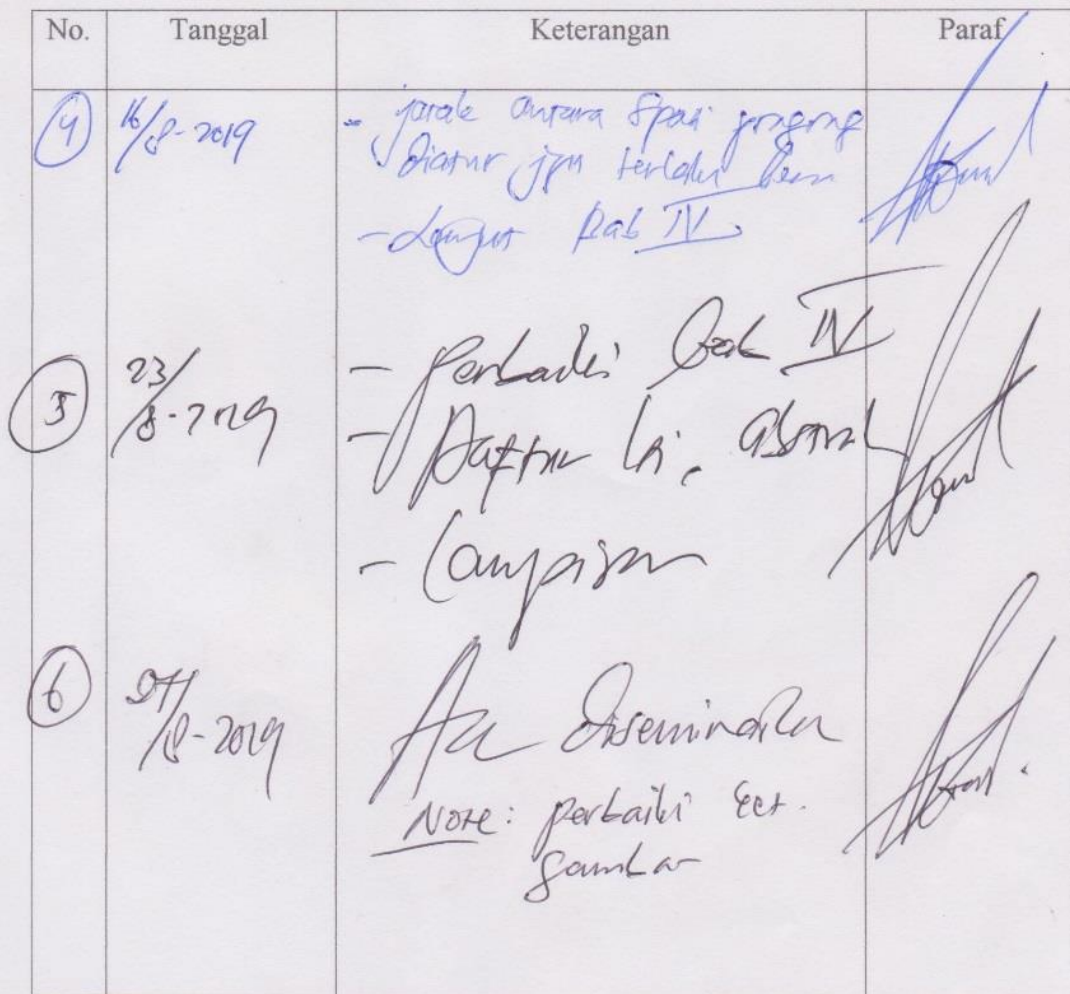 No. Tanggal Keterangan Paraf
4 16/8-2019 - jarak antara spasi
diatur jgn terlalu
- Lanjut Bab IV
5 23/8-2019 - Perbaiki Bab IV
- Daftar isi, abstrak
- Lampiran
6 /8-2019 Acc diseminarkan
Note: perbaiki ket.
gambar